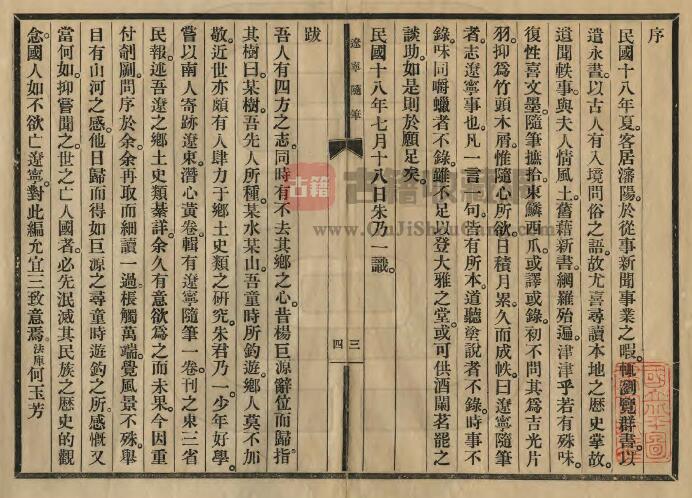 序
民國十八年夏客居瀋陽於從事新聞事業之暇輒瀏覽羣書以
遣永晝以古人有入境問俗之語故尤喜尋讀本地之歷史掌故
遺聞軼事與夫人情風土舊藉新書網羅殆遍津津乎若有殊味
復性喜文墨隨筆摭拾東鱗西爪或譯或錄初不問其爲吉光片
羽抑爲竹頭木屑惟隨心所欲日積月累久而成帙曰遼寧隨筆
者志遼寧事也凡一言一句皆有所本道聽塗說者不錄時事不
錄味同嚼蠟者不錄雖不足以登大雅之堂或可供酒闌茗罷之
談助如是則於願足矣
民國十八年七月十八日朱乃一識
遼寧隨筆
三
四
跋
吾人有四方之志同時有不去其鄉之心昔楊巨源辭位而歸指
其樹曰某樹吾先人所種某水某山吾童時所釣遊鄉人莫不加
敬近世亦頗有人肆力于鄉土史類之研究朱君乃一少年好學
嘗以南人寄跡遼東潛心黃卷輯有遼寧隨筆一卷刊之東三省
民報述吾遼之鄉土史類綦詳余久有意欲爲之而未果今因重
付剞劂問序於余余再取而細讀一過棖觸萬端覺風景不殊舉
目有山河之感他日歸而得如巨源之尋童時遊釣之所感慨又
當何如抑嘗聞之世之亡人國者必先泯滅其民族之歷史的觀
念國人如不欲亡遼寧對此編尤宜三致意焉法庫何玉芳
古籍